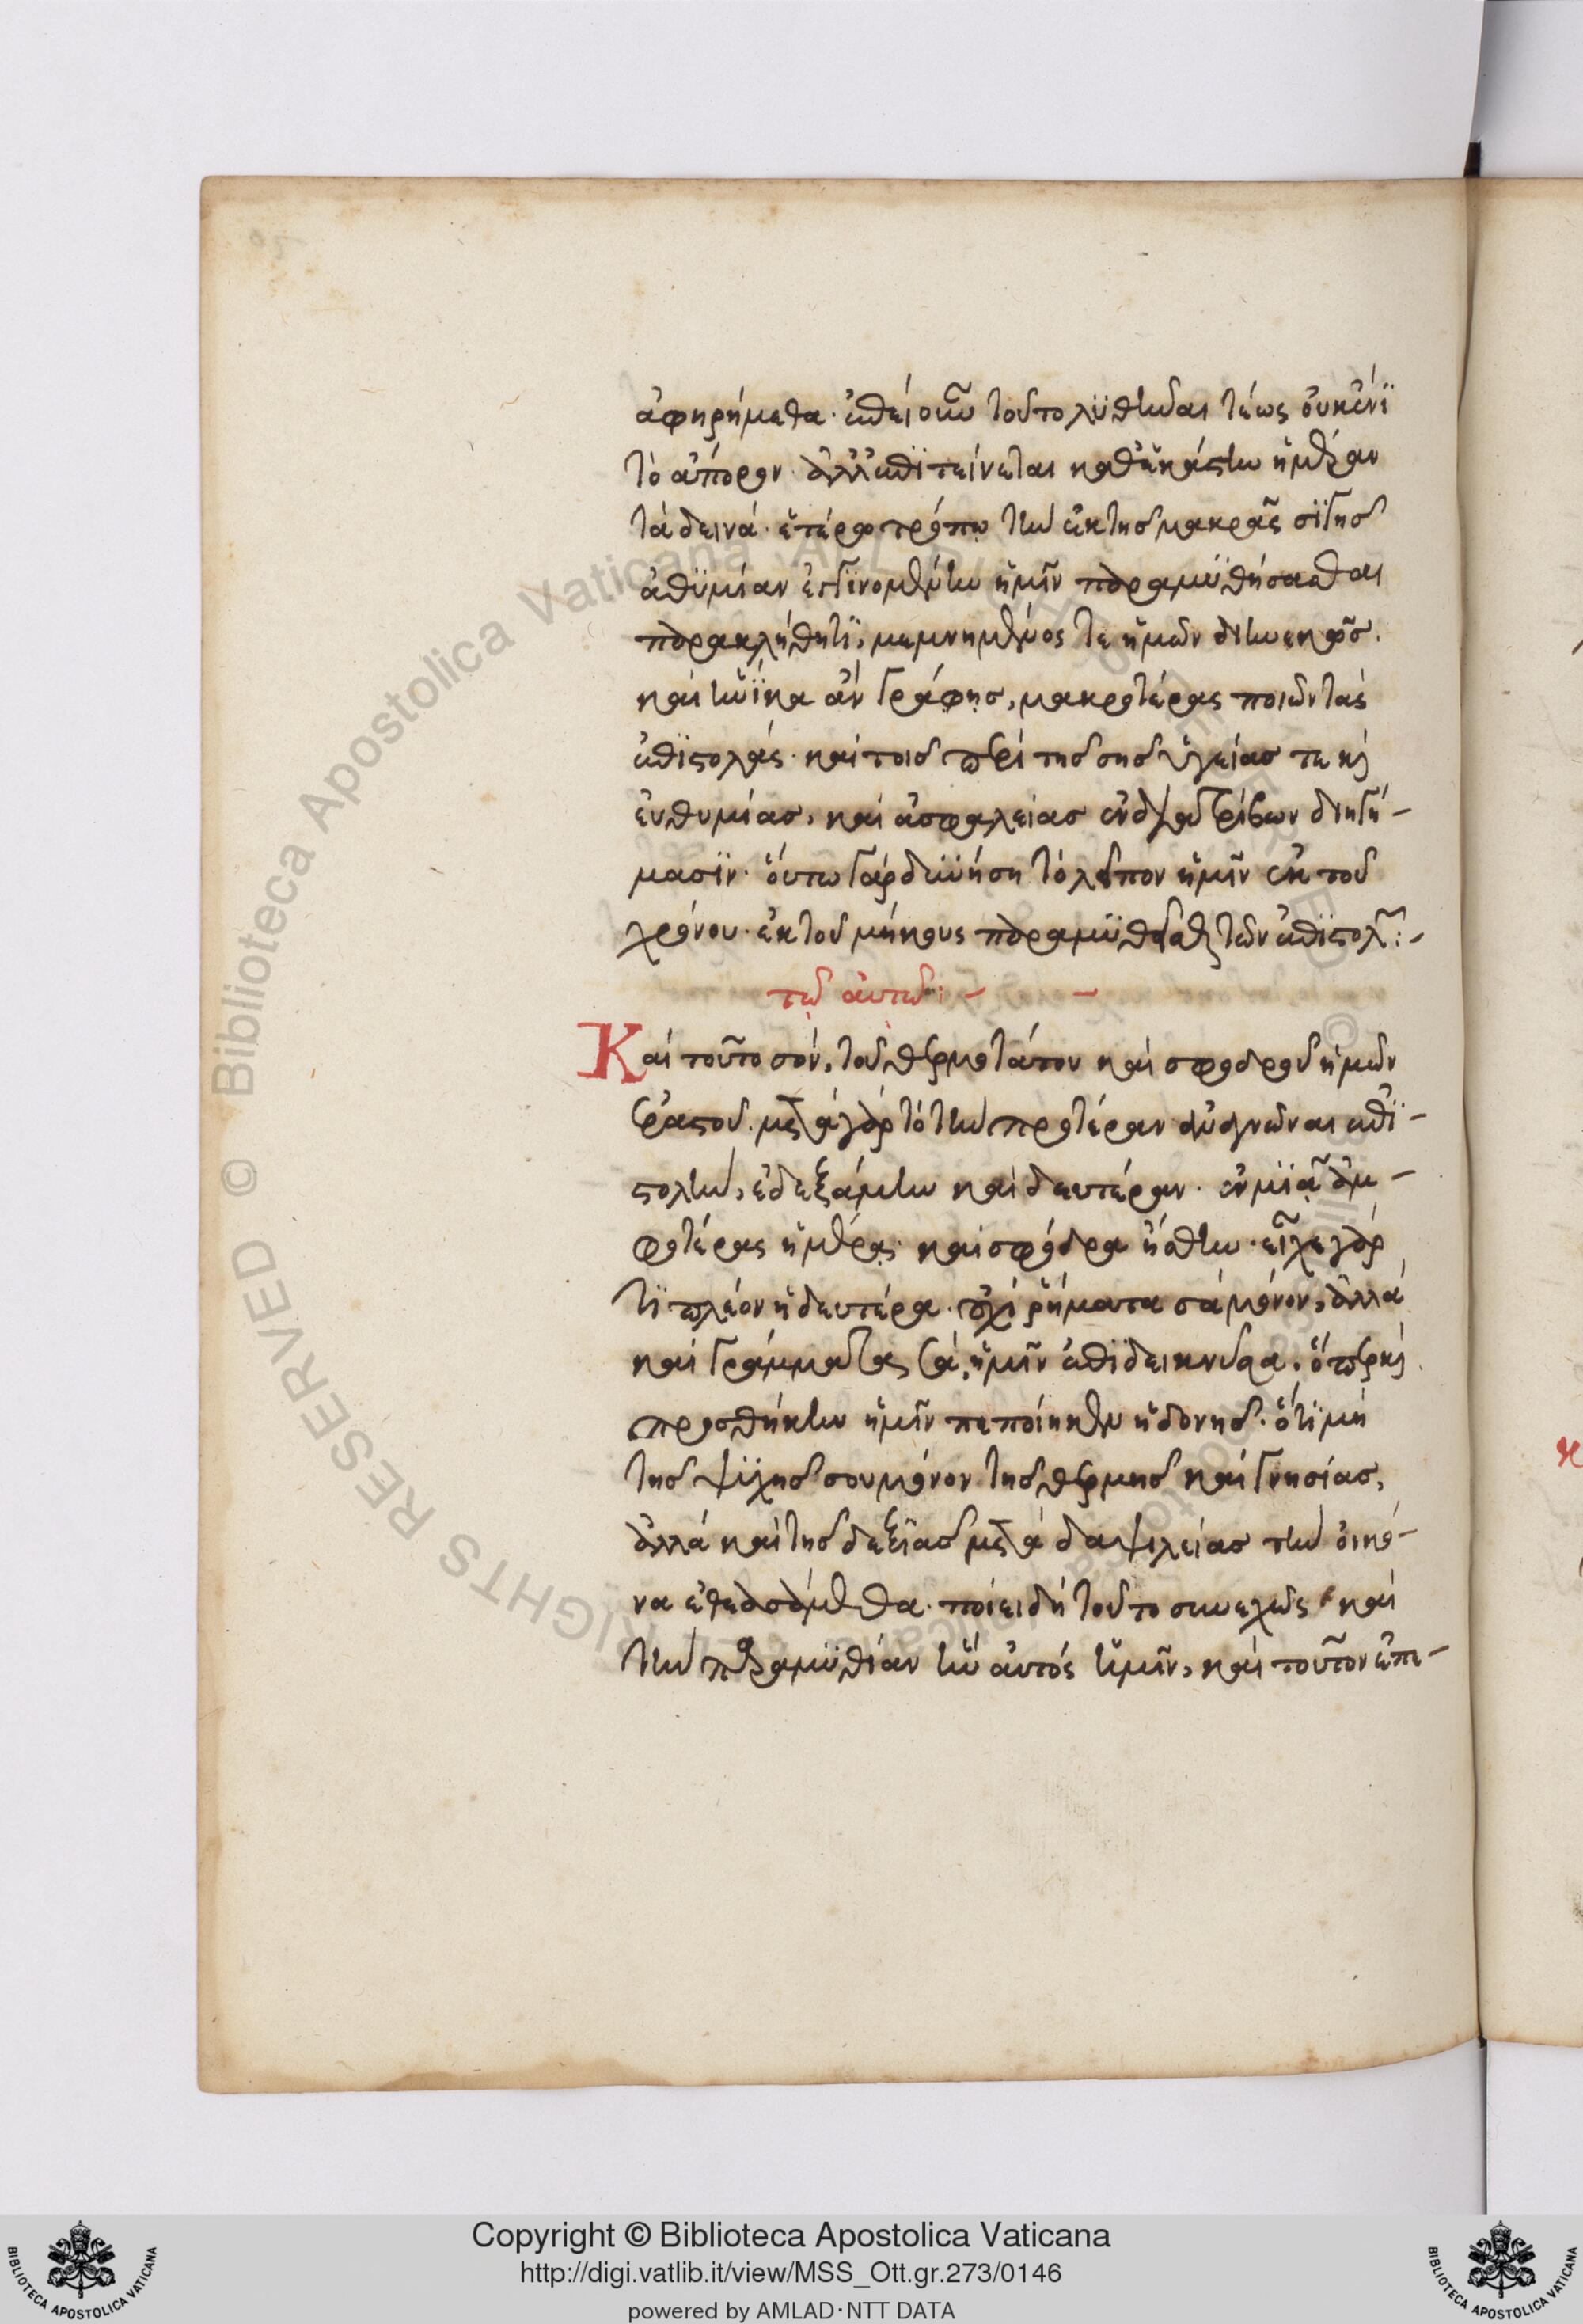 ἀφηρήμεθα· ἐπεὶ οὖν τοῦτο λυθῆναι τέως οὐκ ἔνι
τὸ ἄπορον· ἀλλ' ἐπιτείνεται καθ' ἑκάστην ἡμέραν
τὰ δεινά· ἑτέρω τρόπῳ τὴν ἐκ τῆς μακρᾶς σιγῆς
ἀθυμίαν ἐγγινομένην ἡμῖν παραμυθήσασθαι
παρακλήθητι, μεμνημένος τε ἡμῶν διηνεκῶς.
καὶ ἡνίκα ἂν γράφῃς, μακροτέρας ποιῶν τὰς
ἐπιστολάς· καὶ τοῖς περὶ τῆς σῆς ὑγείας τε καὶ
εὐθυμίας, καὶ ἀσφαλείας ἐνδιατρίβων διηγή-
μασιν· οὕτω γὰρ δυνήση τὸ λεῖπον ἡμῖν ἐκ τοῦ
χρόνου· ἐκ τοῦ μήκους παραμυθεῖσθαι τῶν ἐπιστολῶν:-
τῷ αὐτῷ:-
Καὶ τοῦτο σόν, τοῦ θερμοτάτου καὶ σφοδροῦ ἡμῶν
ἐραστοῦ. μετὰ γὰρ τὸ τὴν προτέραν ἀναγνῶναι ἐπι-
στολὴν, ἐδεξάμην καὶ δευτέραν· ἐν μιᾷ ἀμ-
φοτέρας ἡμέρᾳ· καὶ σφόδρα ἥσθην· εἶχε γὰρ
τι πλέον ἡ δευτέρα· οὐχὶ ῥήματα σὰ μόνον, ἀλλὰ
καὶ γράμματα σὰ ἡμῖν ἐπιδεικνῦσα· ὅπερ καὶ
προσθήκην ἡμῖν πεποίηκεν ἡδονῆς· ὅτι μὴ
τῆς ψυχῆς σου μόνον τῆς θερμῆς καὶ γνησίας,
ἀλλὰ καὶ τῆς δεξιᾶς μετὰ δαψιλείας τὴν εἰκό-
να ἐθεασάμεθα· ποίει δὴ τοῦτο συνεχῶς καὶ
τὴν παραμυθίαν ἣν αὐτός ἡμῖν, καὶ τοῦτον ἐπε-
Copyright © Biblioteca Apostolica Vaticana
http://digi.vatlib.it/view/MSS_Ott.gr.273/0146
powered by AMLAD·NTT DATA